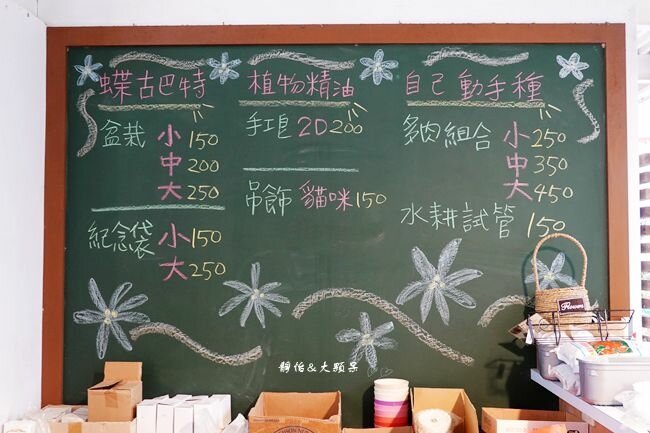 蝶古巴特
盆栽 小 150
中 200
大 250
紀念袋 小 150
大 250
植物精油
手工皂 20 200
吊飾 貓咪 150
自己動手種
多肉組合 小 250
中 350
大 450
水耕試管 150
Flowers
靜怡&大顆呆